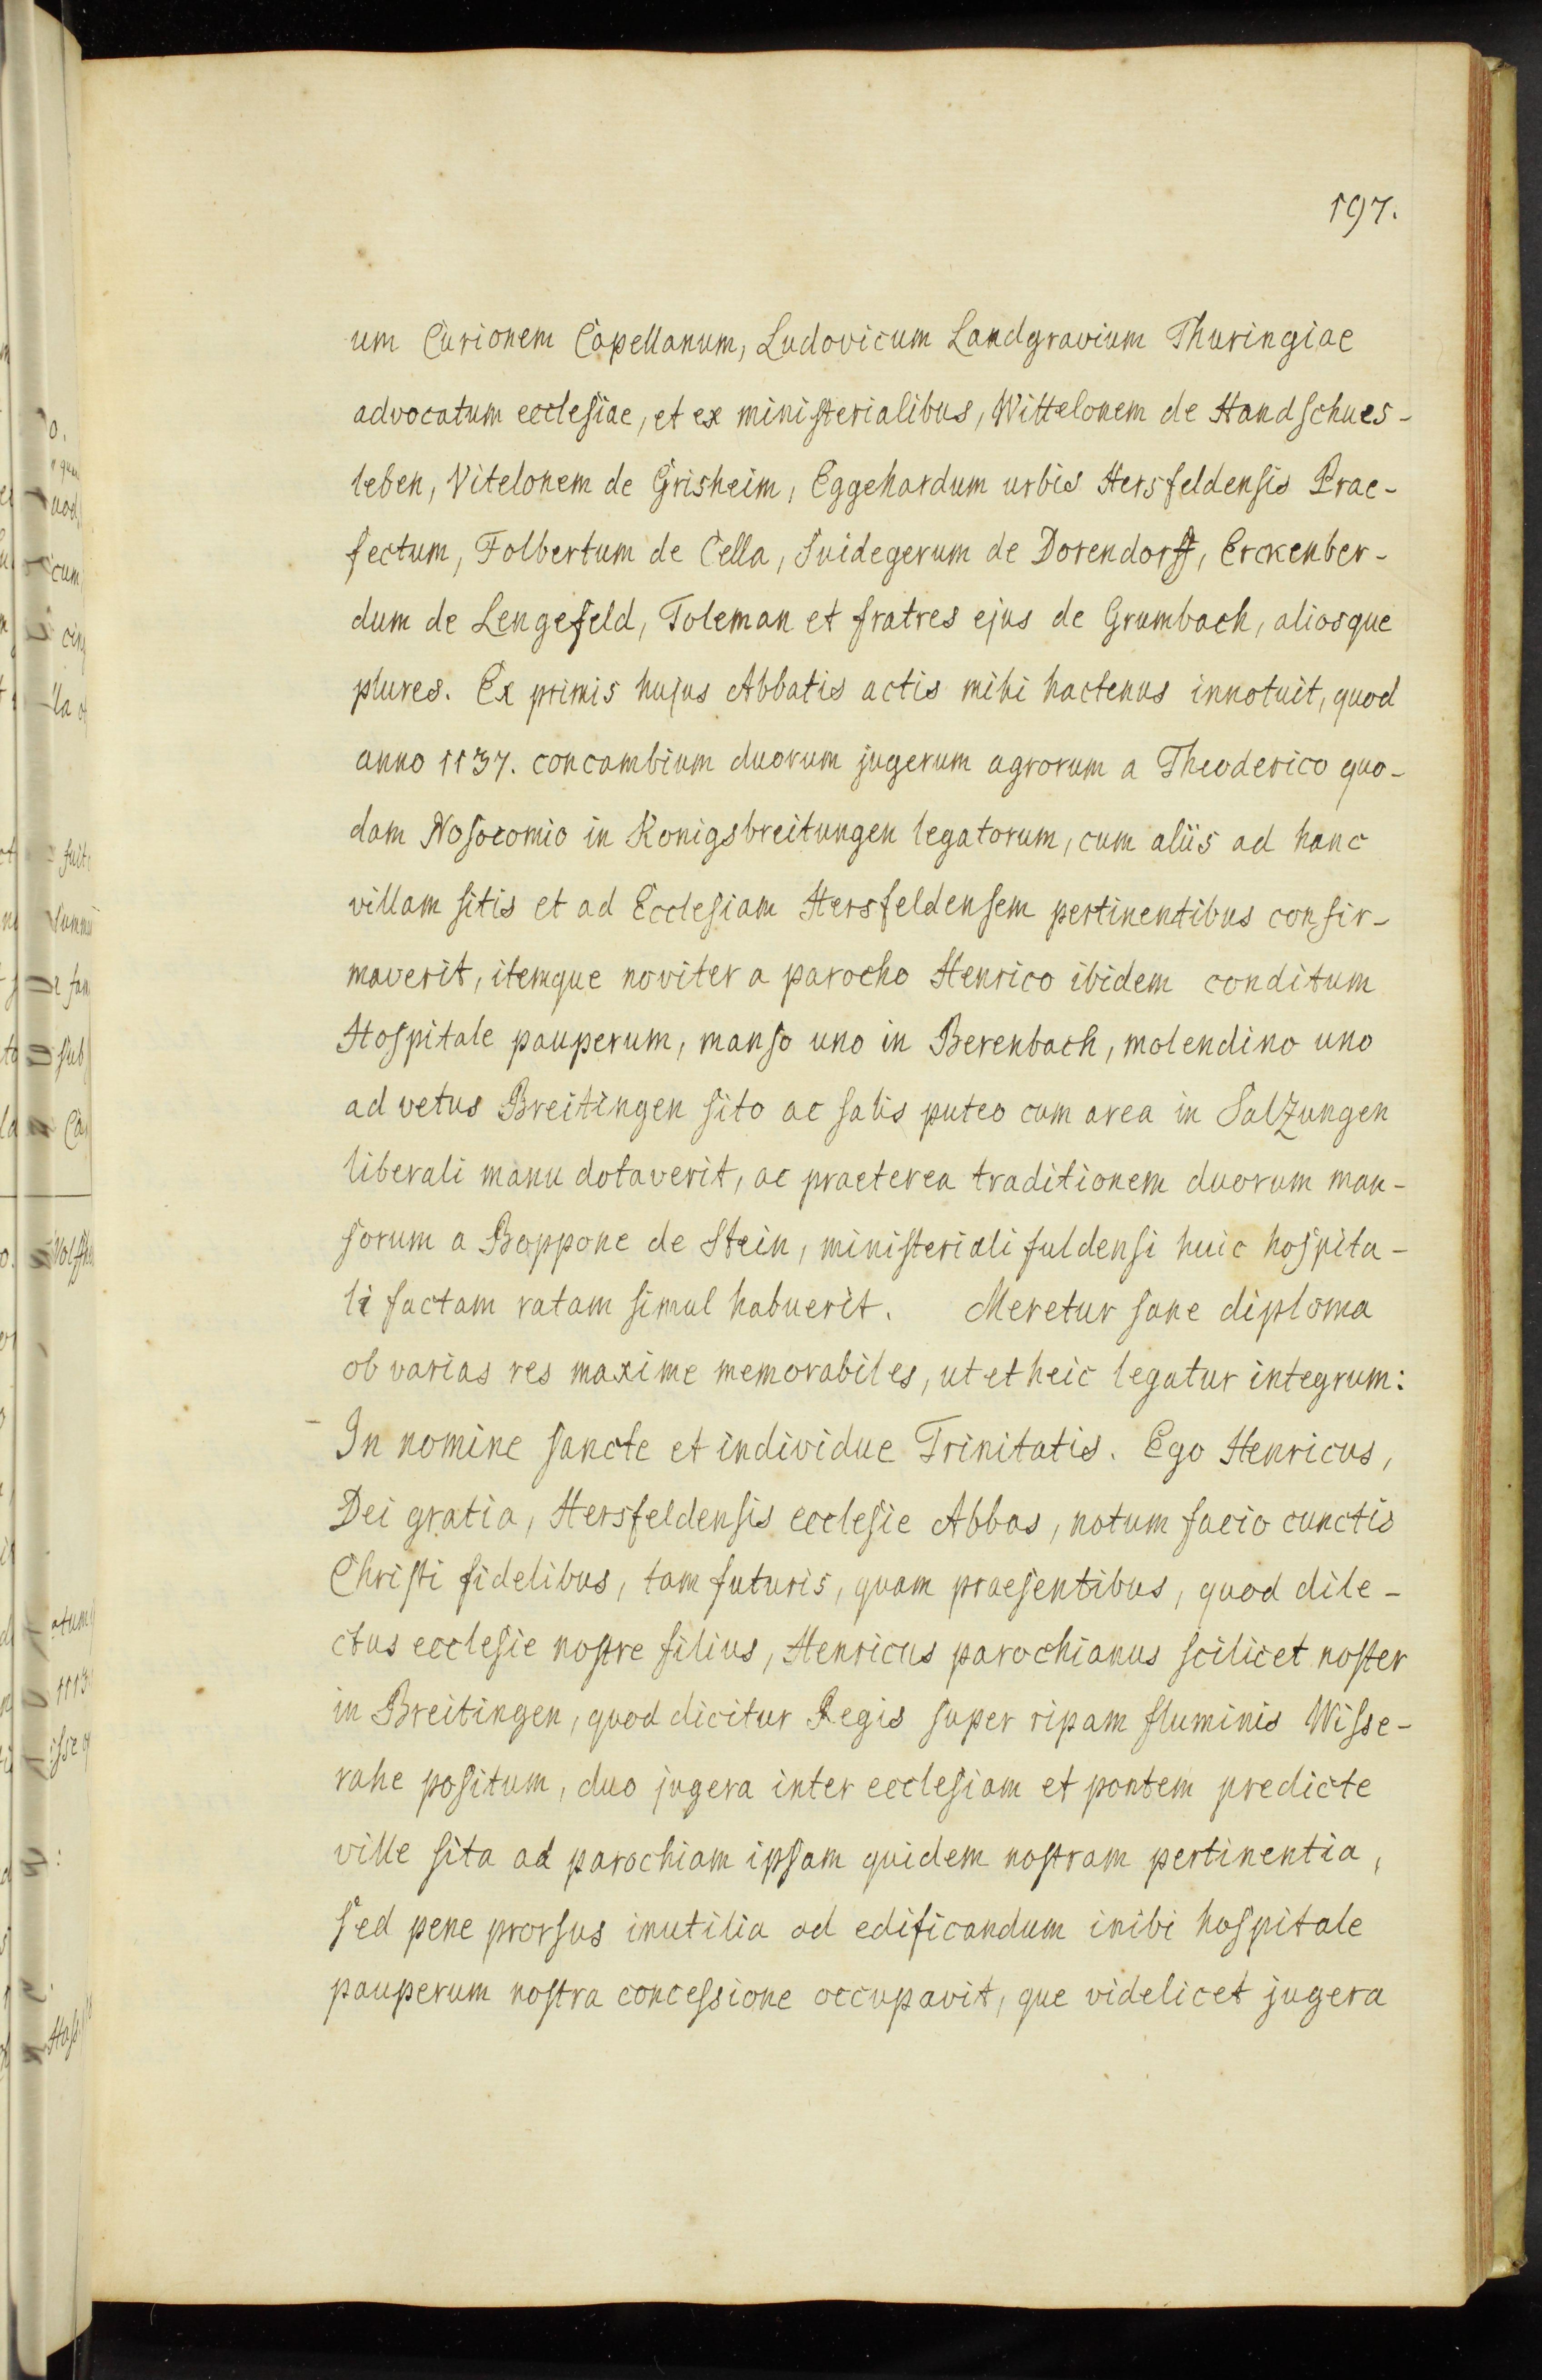 197.
um Curionem Capellanum, Ludovicum Landgravium Thuringiae
advocatum ecclesiae, et ex ministerialibus, Wittelonem de Handschues-
leben, Vitelonem de Grisheim, Eggehardum urbis Hersfeldensis Prae-
fectum, Folbertum de Cella, Suidegerum de Dorendorff, Erckenber-
dum de Lengefeld, Toleman et fratres ejus de Grumbach, aliosque
plures. Ex primis hujus Abbatis actis mihi hactenus innotuit, quod
anno 1137. concambium duorum jugerum agrorum a Theoderico quo-
dam Nosocomio in Konigsbreitungen legatorum, cum aliis ad hanc
villam sitis et ad Ecclesiam Hersfeldensem pertinentibus confir-
maverit, itemque noviter a parocho Henrico ibidem conditum
Hospitale pauperum, manso uno in Berenbach, molendino uno
ad vetus Breitingen sito ac salis puteo cum area in Salzungen
liberali manu dotaverit, ac praeterea traditionem duorum man-
sorum a Boppone de Stein, ministeriali fuldensi huic hospita-
li factam ratam simul habuerit. Meretur sane diploma
ob varias res maxime memorabiles, ut et heic legatur integrum:
In nomine sancte et individue Trinitatis. Ego Henricus,
Dei gratia, Hersfeldensis ecclesie Abbas, notum facio cunctis
Christi fidelibus, tam futuris, quam praesentibus, quod dile-
ctus ecclesie nostre filius, Henricus parochianus scilicet noster
in Breitingen, quod dicitur Regis super ripam fluminis Wisse-
rahe positum, duo jugera inter ecclesiam et pontem predicte
ville sita ad parochiam ipsam quidem nostram pertinentia,
sed pene prorsus inutilia ad edificandum inibi hospitale
pauperum nostra concessione occupavit, que videlicet jugera